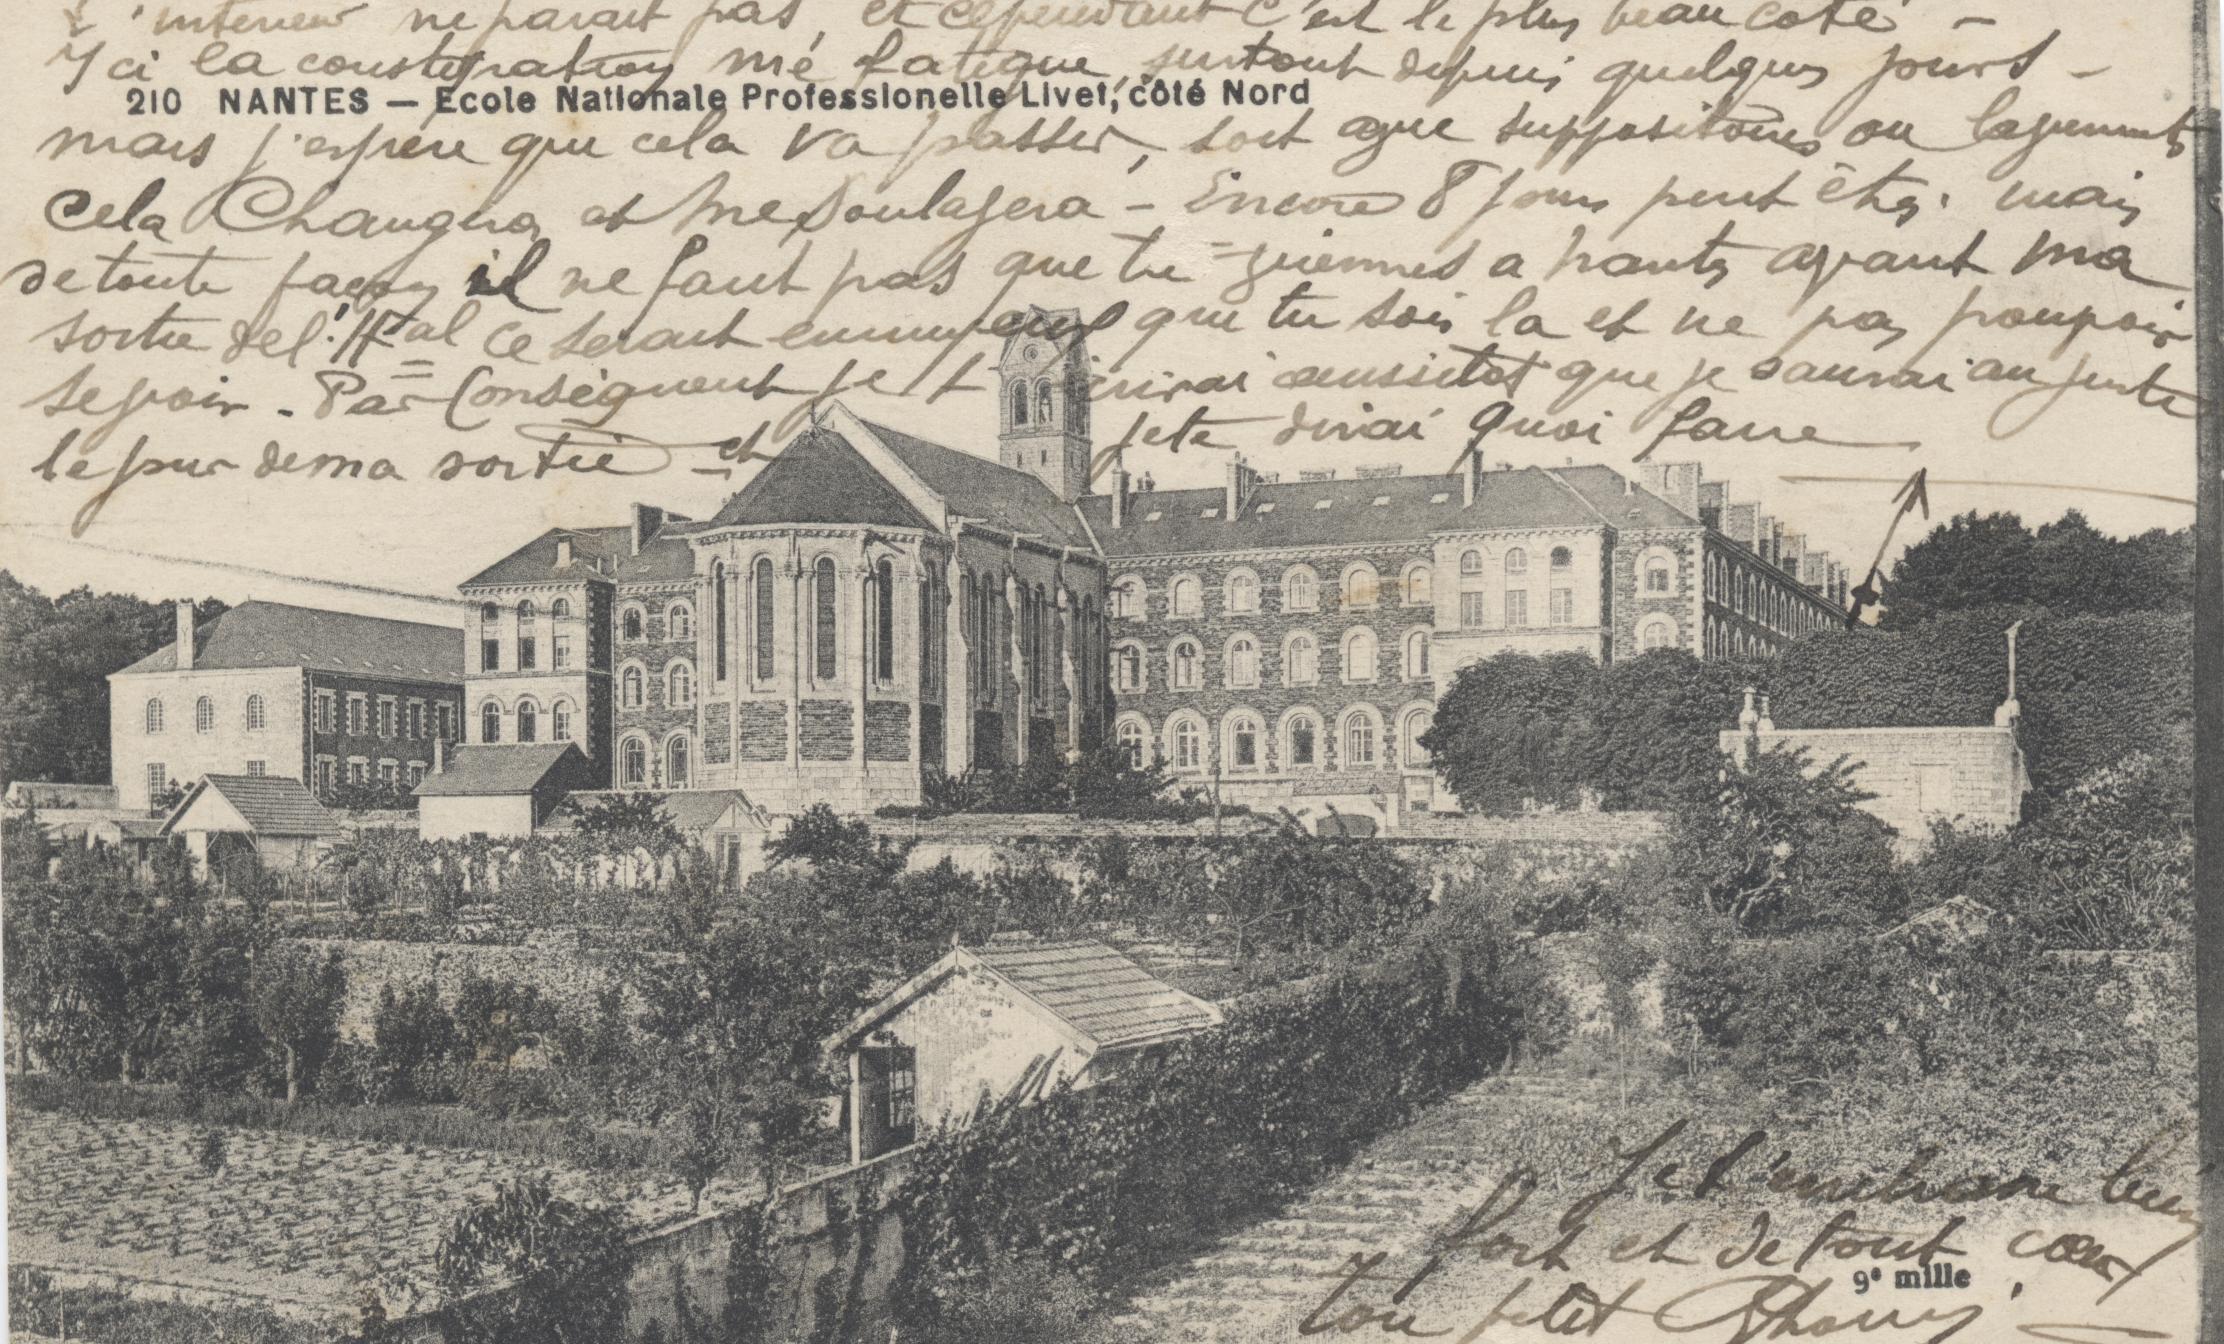 L'interieur ne parait pas, et cependant c'est le plus beau coté -
Ici la constipation mé fatigue, surtout depuis quelques jours -
210 NANTES — Ecole Nationale Professionelle Livet, côté Nord
mais j'espère que cela va passer, soit avec suppositoires ou lavements
cela Changera et me Soulagera - Encore 8 jours peut être. mais
de toute façon il ne faut pas que tu viennes a Nantes avant ma
sortie de l'Hal ce serait ennuyeux que tu sois la et ne pas pouvoir
se voir. Par Conséquent je t'écrirai aussitot que je saurai au juste
le jour de ma sortie et je te dirai quoi faire
Je t'embrasse bien
fort et de tout cœur
9e mille
Ton petit